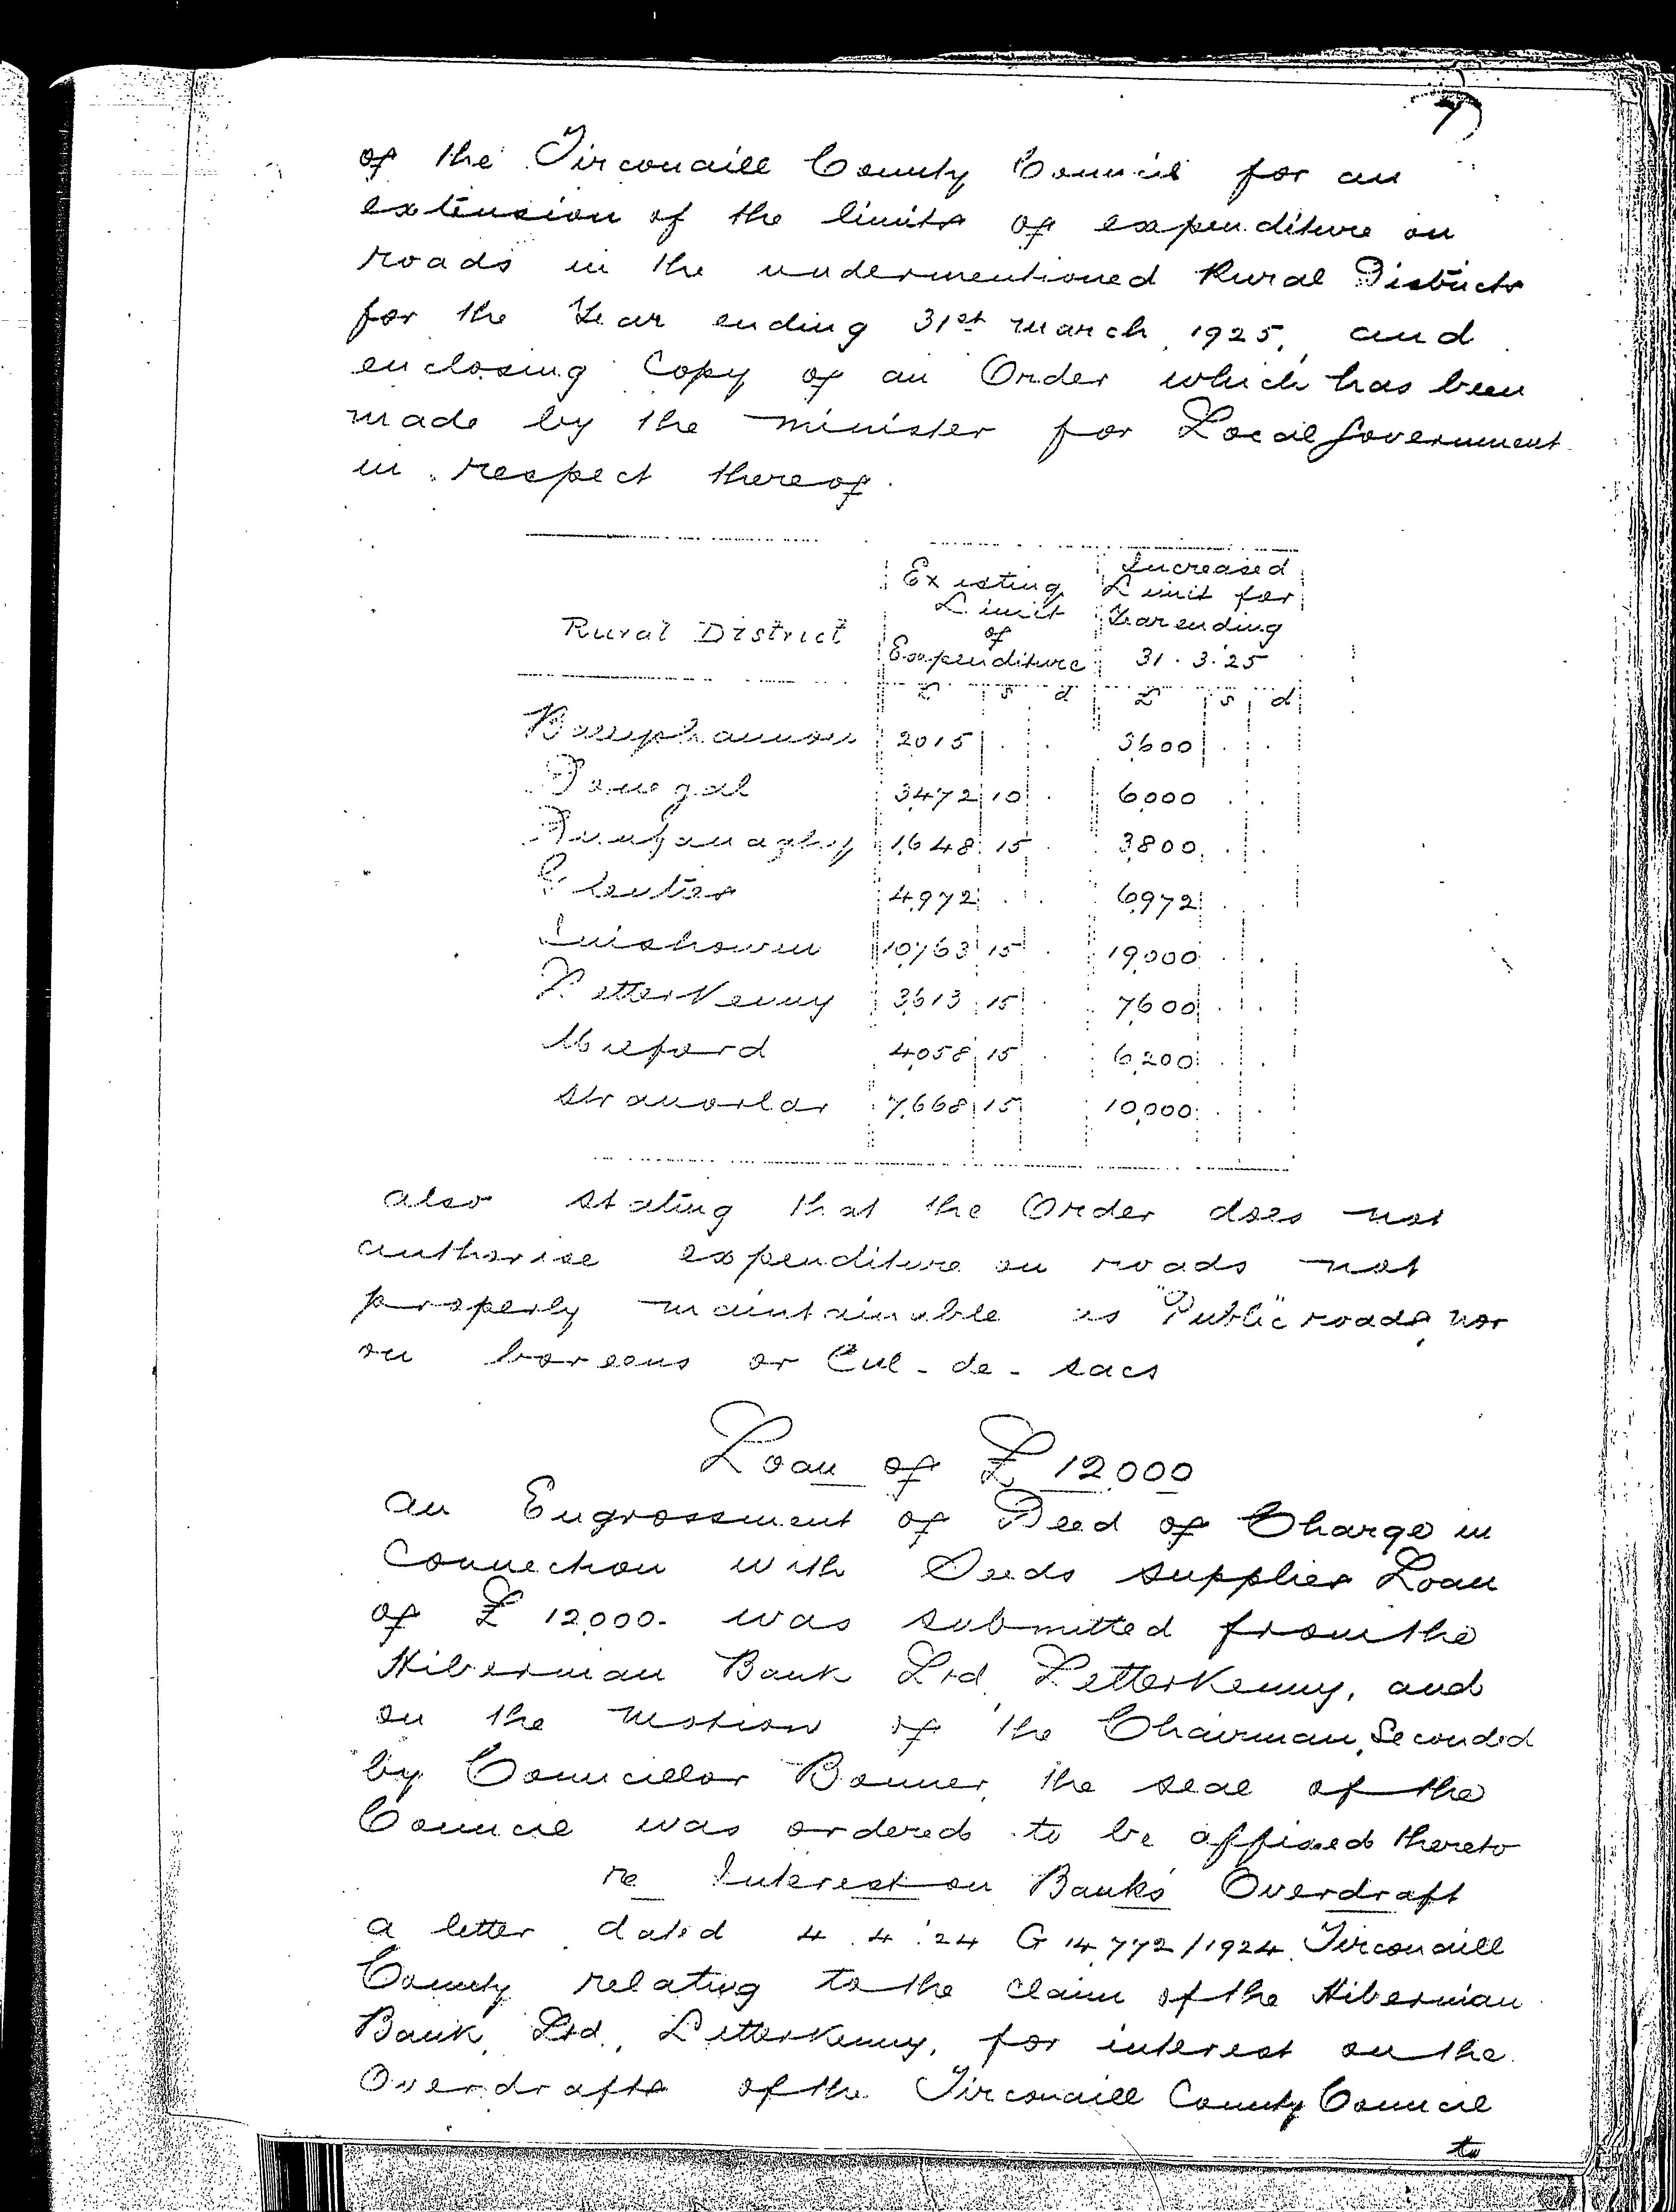 7
of the Tirconaill County Council for an
extension of the limits of expenditure on
roads in the undermentioned Rural Districts
for the Year ending 31st March, 1925, and
enclosing Copy of an Order which has been
made by the minister for Local Government
in respect thereof.
Rural District | Existing Limit of Expenditure | Increased Limit for Year ending 31.3.'25
£ s d £ s d
Ballyshannon 2015 . . 3,600 . .
Donegal 3,472 10 . 6,000 . .
Dunfanaghy 1,648 15 . 3,800 . .
Glenties 4,972 . . 6,972 . .
Inishowen 10,763 15 . 19,000 . .
Letterkenny 3,613 15 . 7,600 . .
Milford 4,058 15 . 6,200 . .
Stranorlar 7,668 15 10,000 . .
also stating that the Order does not
authorise expenditure on roads not
properly maintainable as "Public" roads, nor
on boreens or Cul-de-sacs
Loan of £12,000
an Engrossment of Deed of Charge in
Connection with Seeds supplies Loan
of £12,000. was submitted from the
Hibernian Bank Ltd, Letterkenny, and
on the motion of the Chairman, Seconded
by Councillor Bonner, the seal of the
Council was ordered to be affixed thereto
re Interest on Bank's Overdraft
a letter dated 4.4.'24 G 14,772/1924 Tirconaill
County relating to the claim of the Hibernian
Bank, Ltd., Letterkenny, for interest on the
Overdrafts of the Tirconaill County Council
to